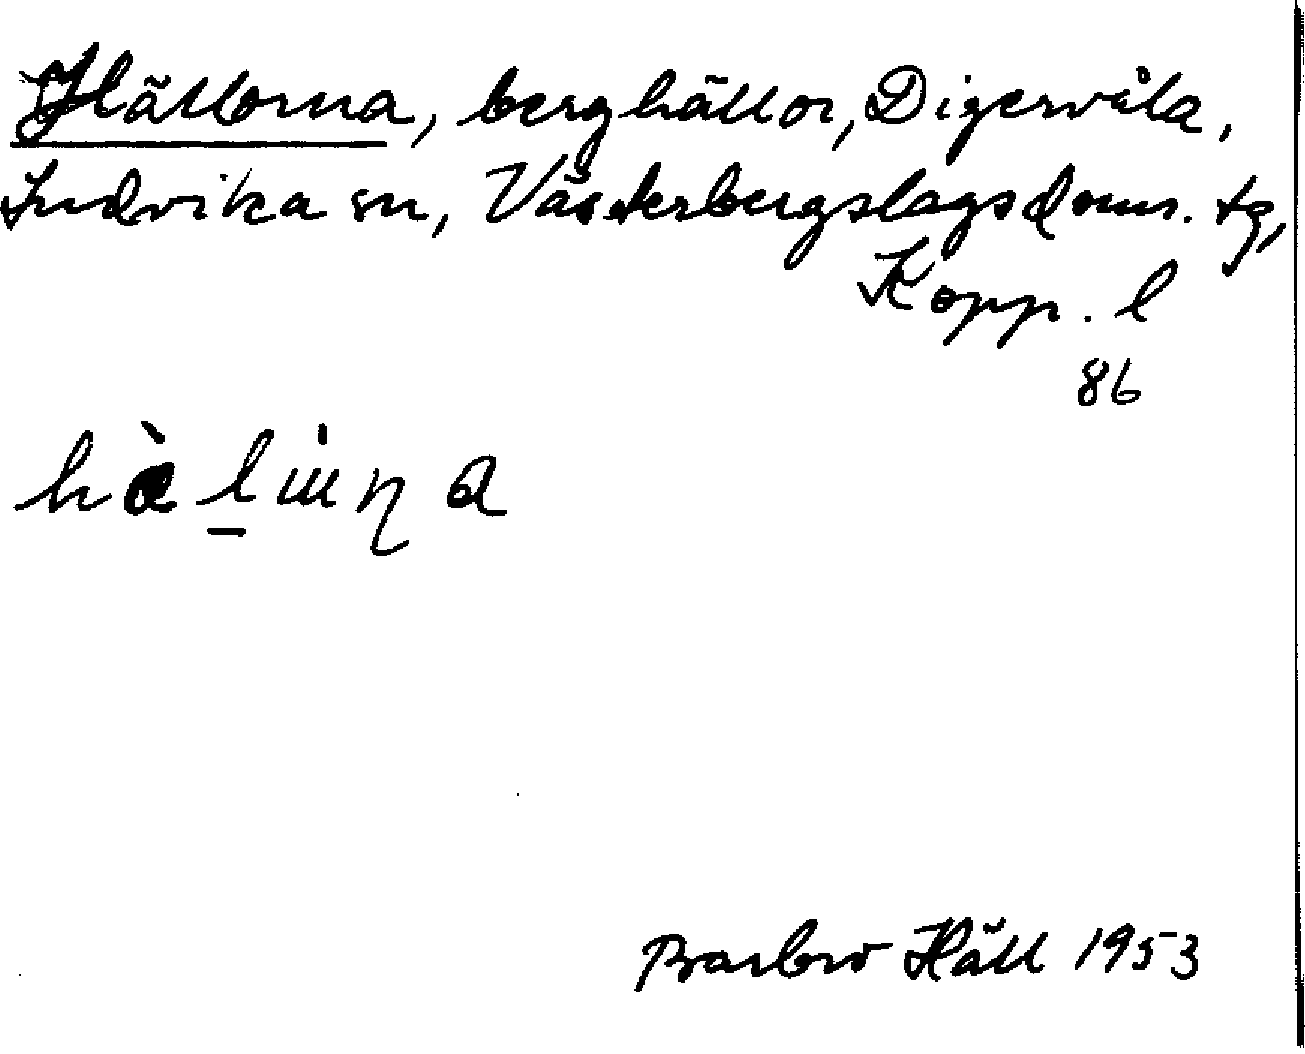 Hällorna, berghällor, Digervåla,
Ludvika sn, Västerbergslags doms. tg,
Kopp. l
86
Barbro Häll 1953